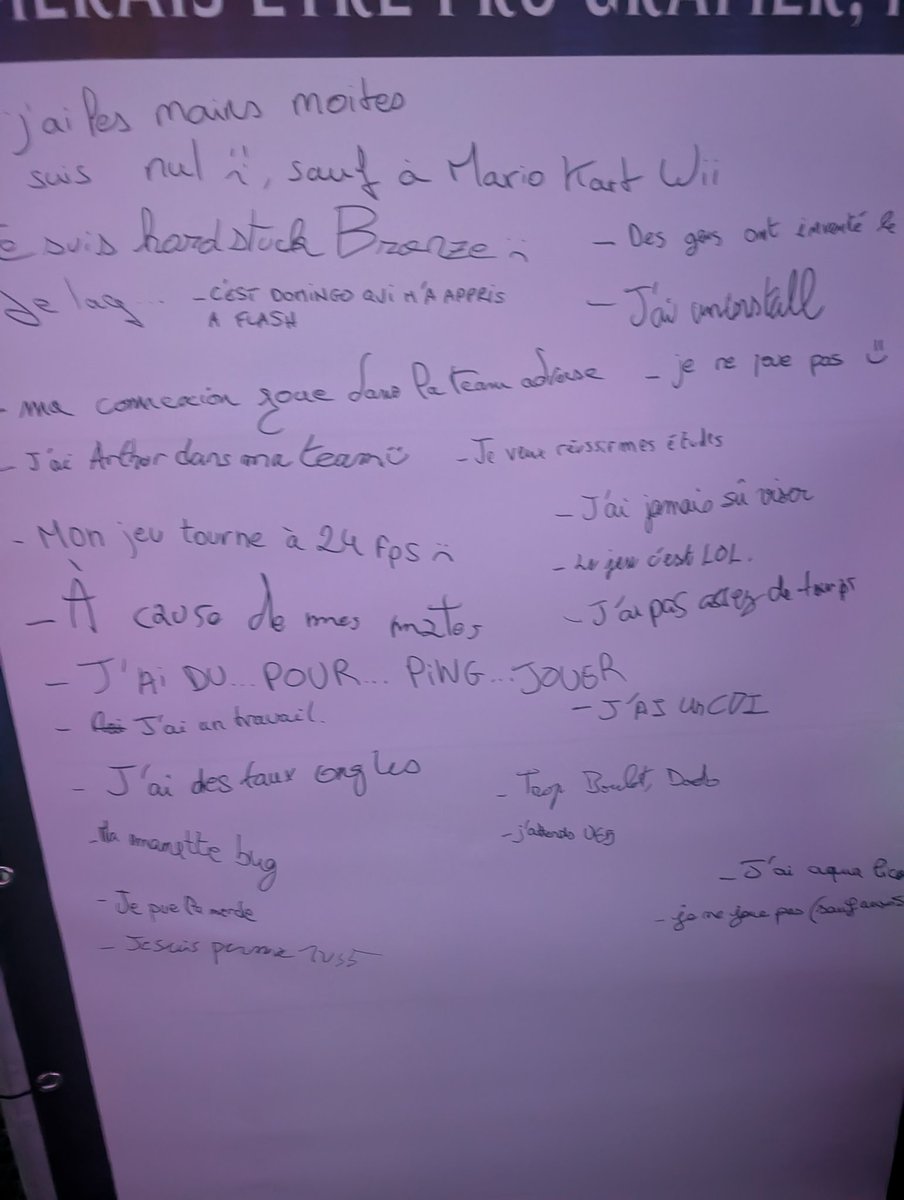 j'ai les mains moites
suis nul :, sauf à Mario Kart Wii
e suis hardstuck Bronze :
- Des gens ont inventé le
Je lag...
- C'EST DOMINGO QUI M'A APPRIS
A FLASH
- J'ai uninstall
- ma connexion joue dans la team adverse
- je ne joue pas :)
- J'ai Arthur dans ma team
- Je veux réussir mes études
- J'ai jamais sû viser
- Mon jeu tourne à 24 fps
- Le jeu c'est LOL.
- À cause de mes mates
- J'ai pas assez de temps
- J'AI DU... POUR... PING... JOUER
- J'ai un travail.
- J'AI UN CDI
- J'ai des faux ongles
- Ma manette bug
- j'attends
- J'ai aqua
- Je pue la merde
- je ne joue pas (sauf
- Je suis perma